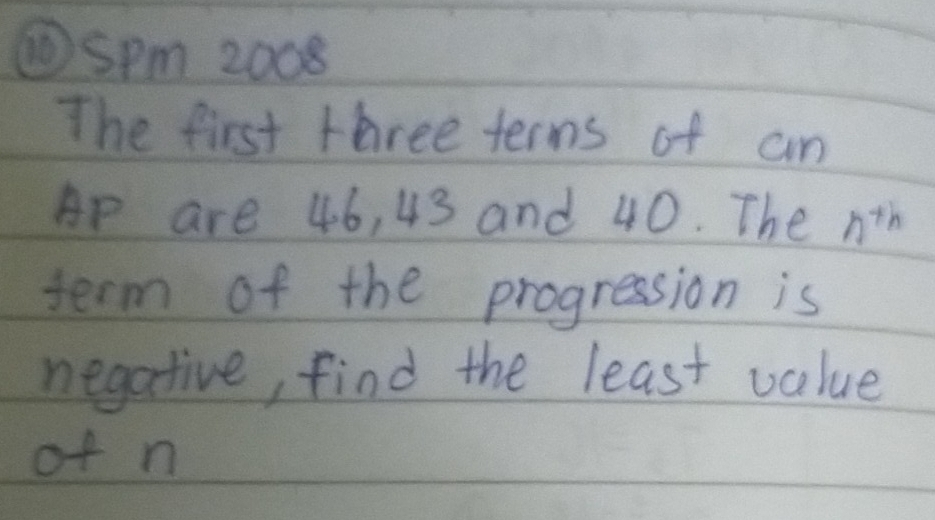 10 SPM 2008
The first three terms of an
AP are 46, 43 and 40. The nth
term of the progression is
negative, find the least value
of n